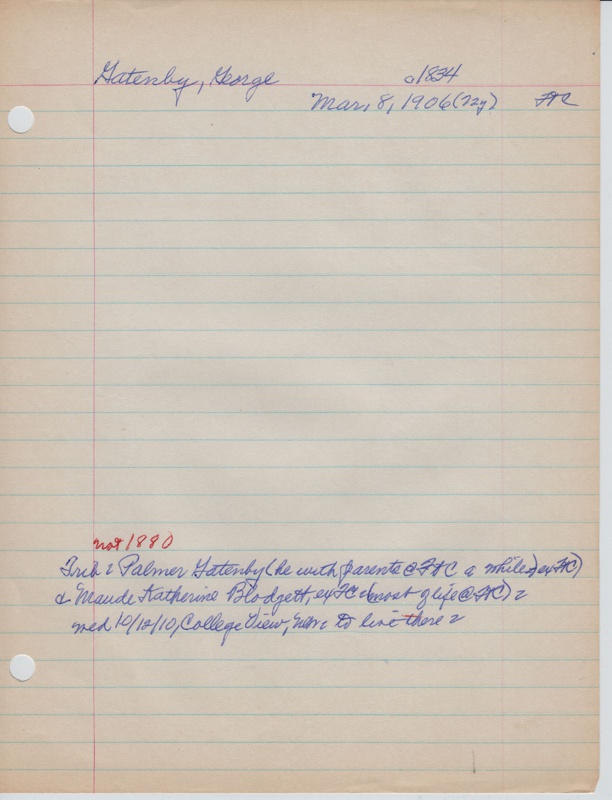 Gatenby, George c1834
Mar. 8, 1906 (72y) FtC
not 1880
Trib: Palmer Gatenby (he with parents @ FtC a while) ex FtC)
& Maude Katherine Blodgett, ex FtC (most of life @ FtC) :
wed 10/12/10, College View, Neb: to live there :